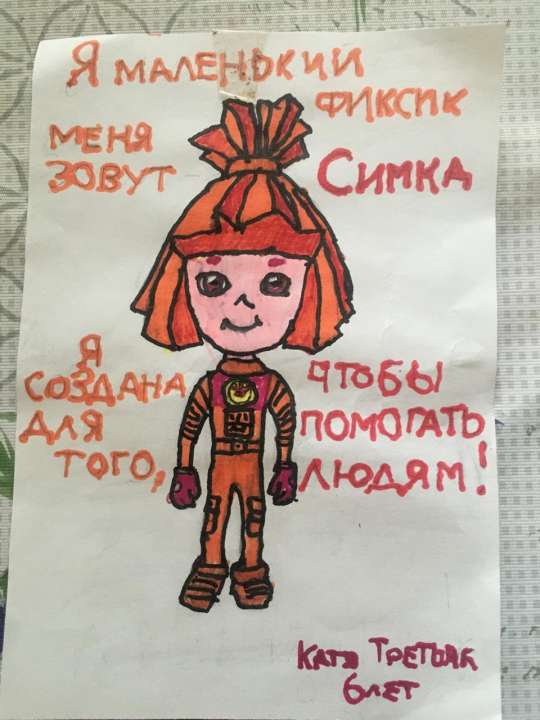 Я МАЛЕНЬКИЙ
ФИКСИК
МЕНЯ
ЗОВУТ
СИМКА
Я
СОЗДАНА
ДЛЯ
ТОГО,
ЧТОБЫ
ПОМОГАТЬ
ЛЮДЯМ!
КАТЯ ТРЕТЬЯК
6 ЛЕТ